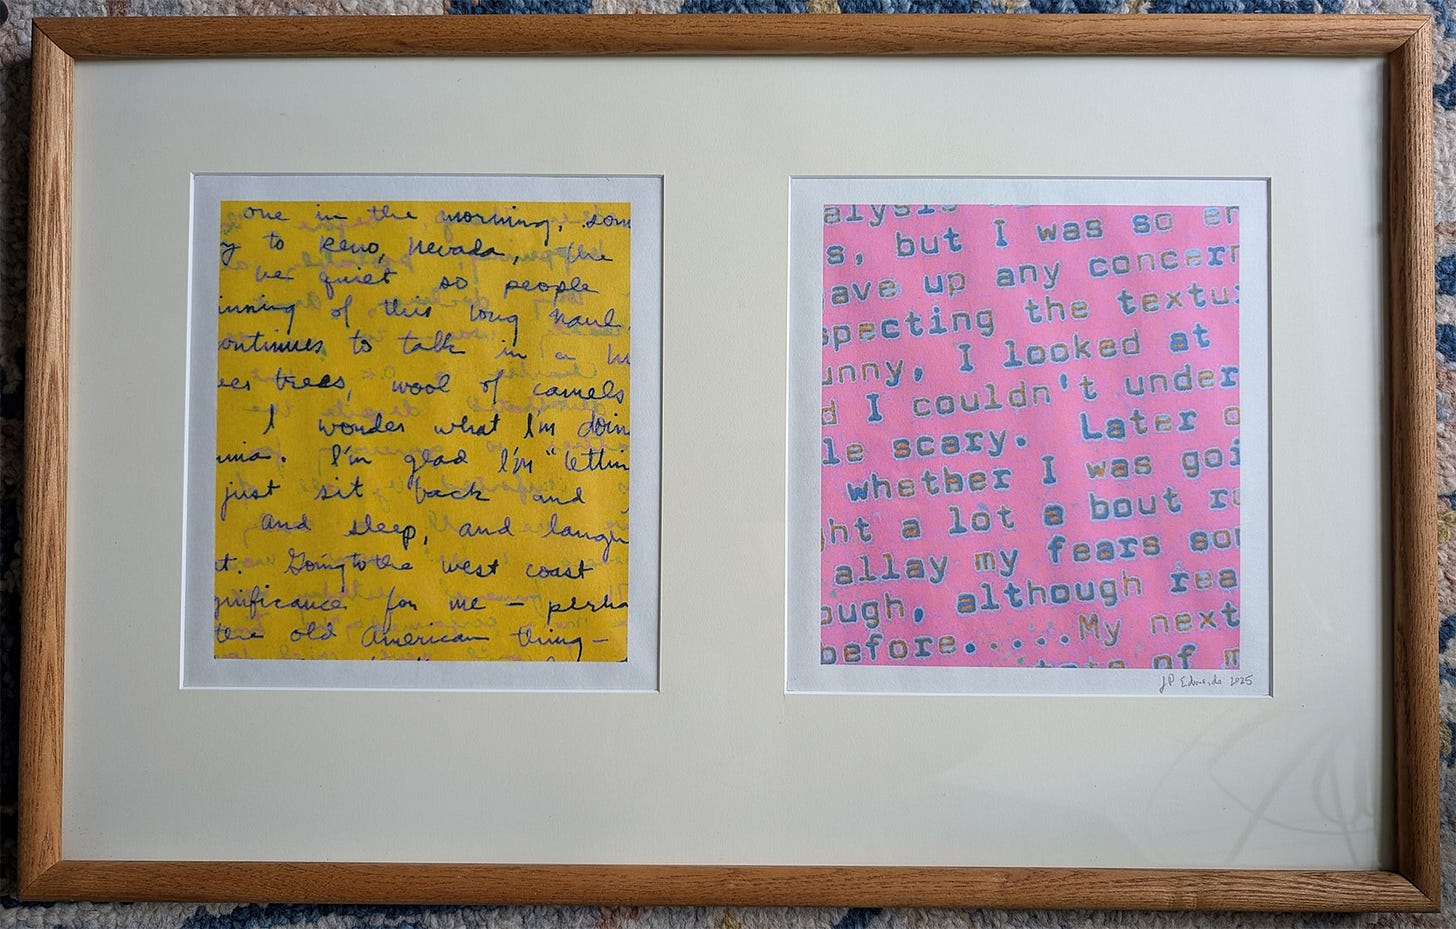 one in the morning, som
y to Reno, Nevada, the
ve quiet so people
inning of this long haul.
ontinues to talk in a hu
ees trees, wool of camels
I wonder what I'm doin
nia. I'm glad I'm "lettin
just sit back and
And sleep, and laugh
t. Going to the west coast
gnificance for me — perha
the old American thing—
alysis
s, but I was so en
ave up any concern
specting the textu
unny, I looked at
d I couldn't under
le scary. Later o
whether I was goi
ht a lot a bout r
allay my fears som
ough, although rea
before.....My next
tate of m
JP Edwards 2025